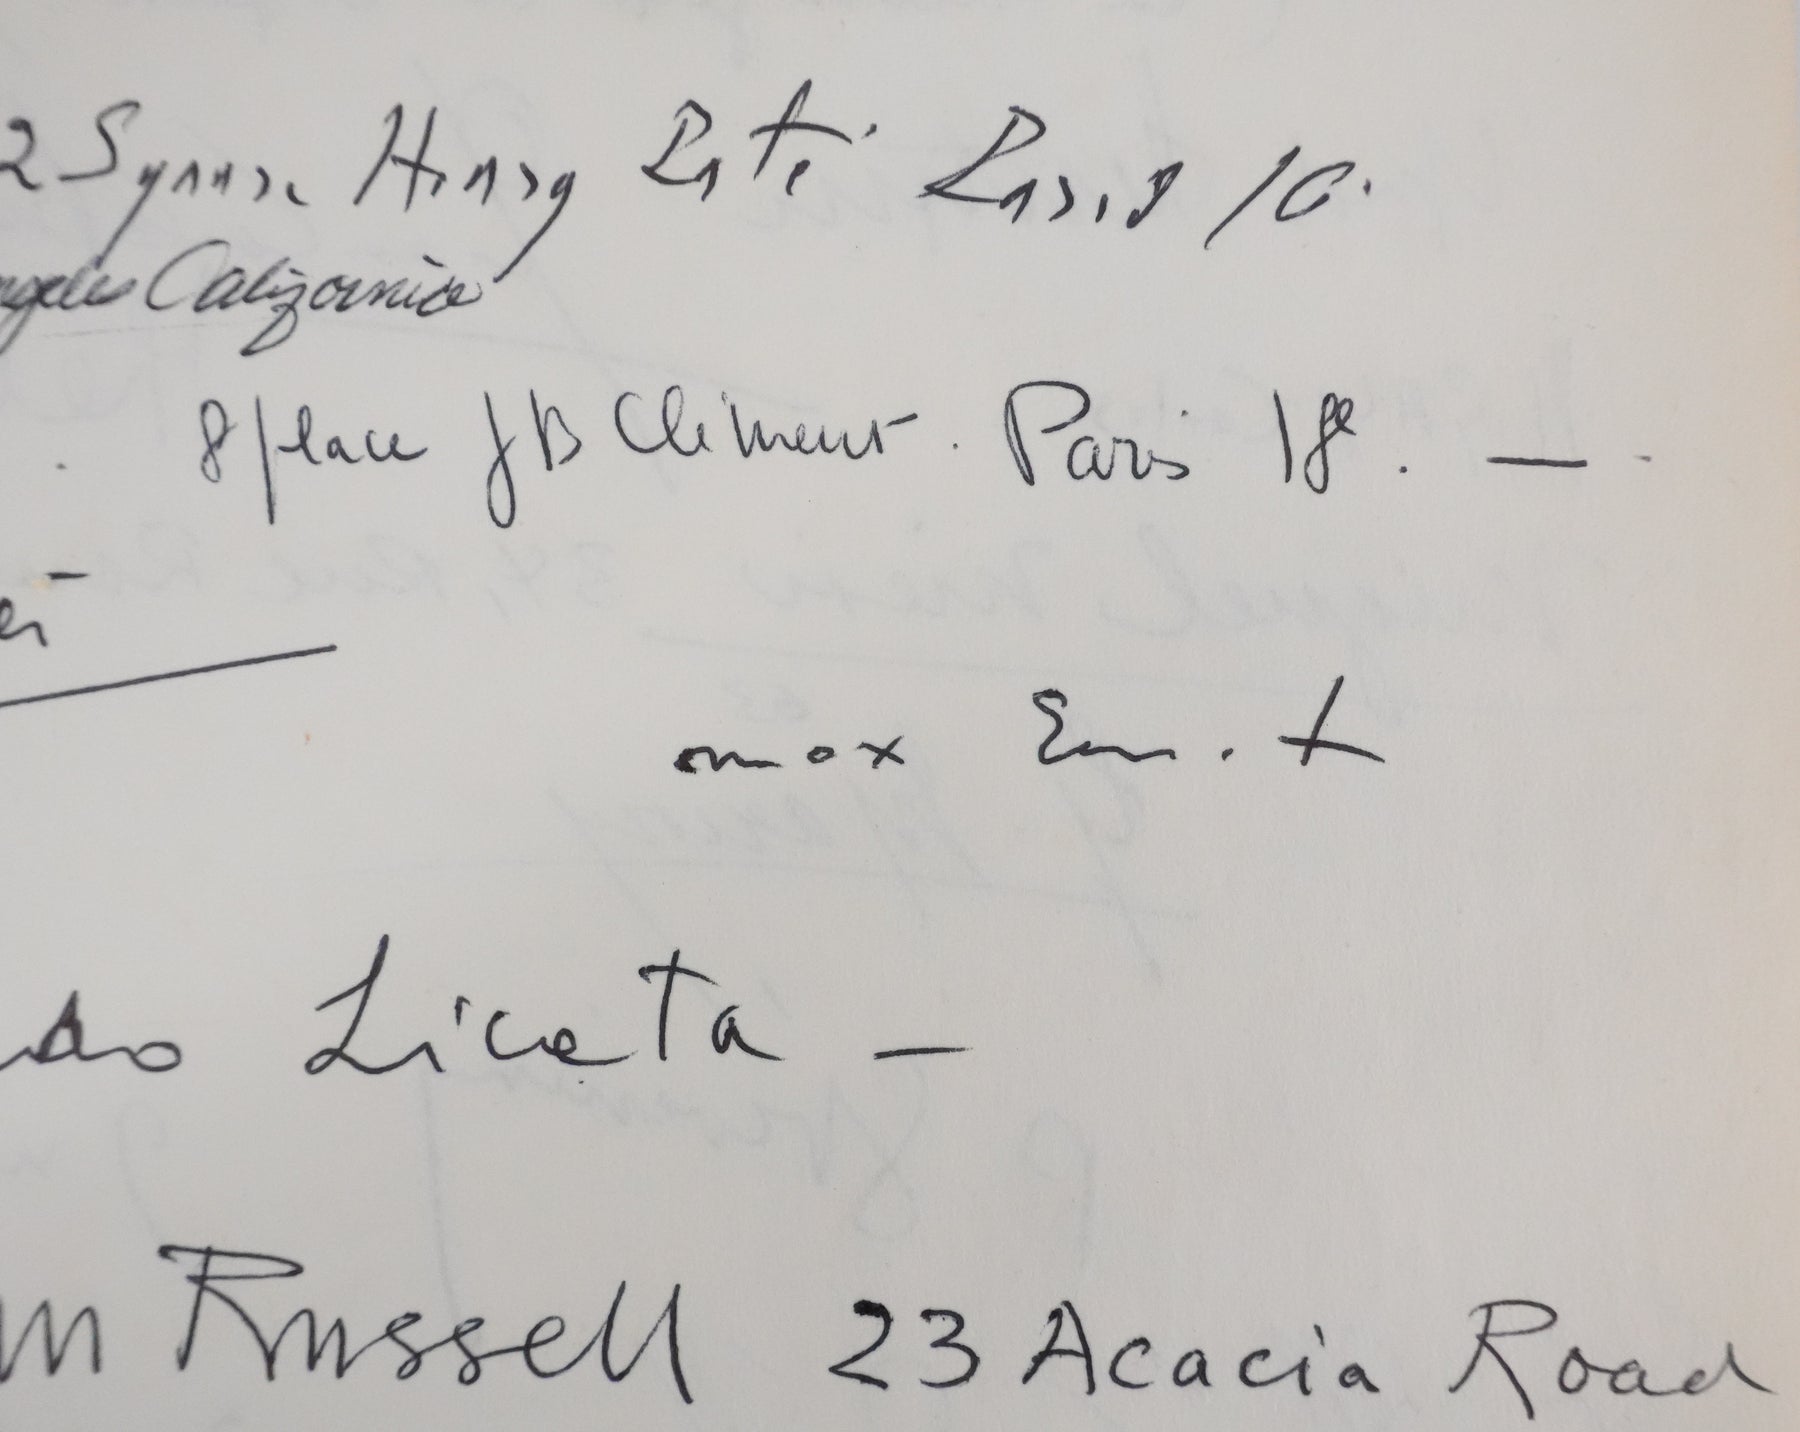 2 Square Henry Paté Paris 16.
Angeles California
8 place JB Clément. Paris 18e. —
max Ernst
Licata —
Russell 23 Acacia Road